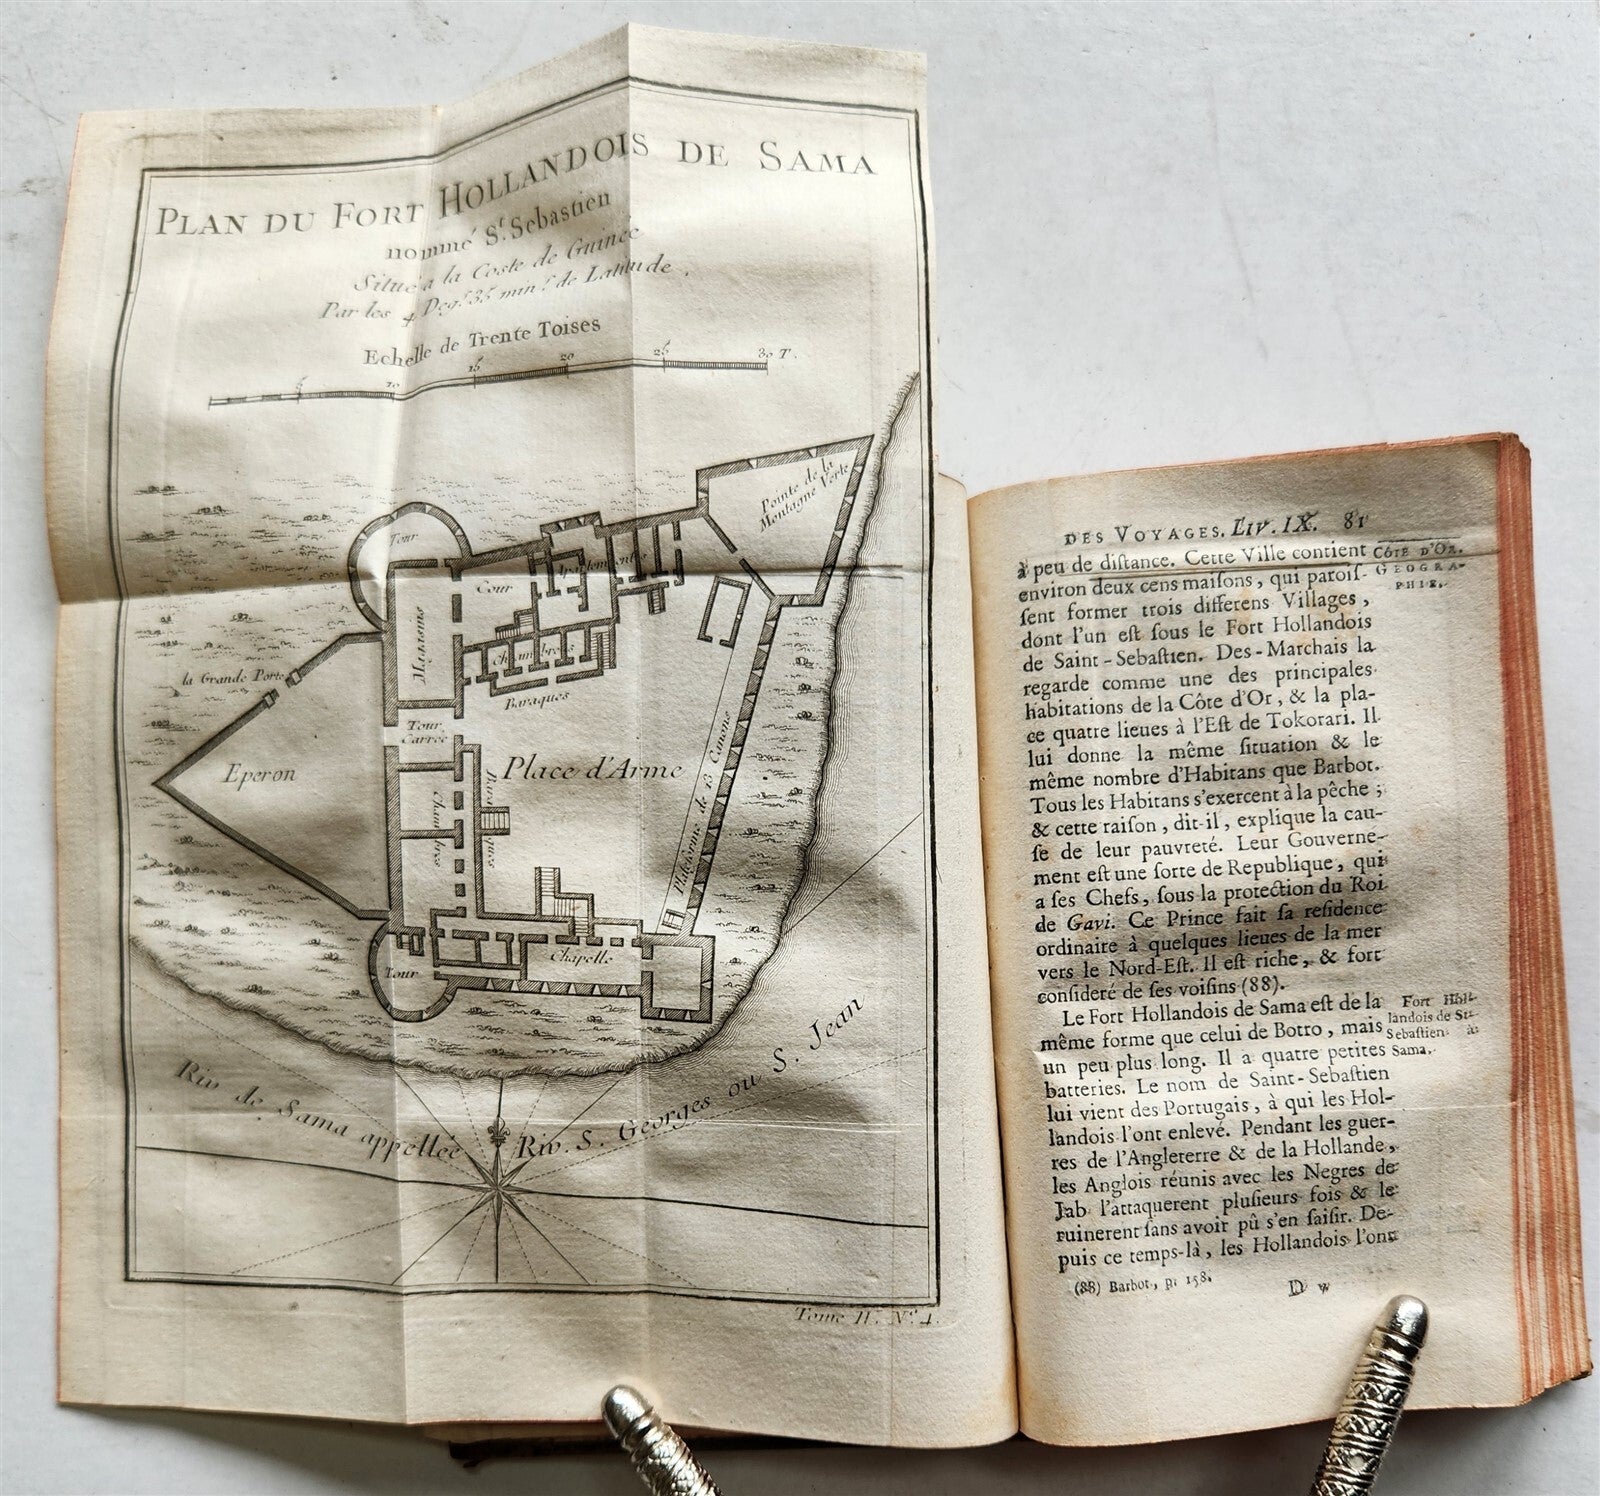 PLAN DU FORT HOLLANDOIS DE SAMA
nommé St. Sebastien
Situé a la Coste de Guinée
Par les 4 Deg. 35 min. de Latitude.
Echelle de Trente Toises
5 10 15 20 25 30 T.
Pointe de la
Montagne Verte
Tour
Cour
Apartements
Magasins
Chambres
Baraques
la Grande Porte
Tour
Carrée
Eperon
Place d'Arme
Plateforme de 13 Canons
Chambres
Baraques
Chapelle
Tour
Riv. de Sama appellée Riv. S. Georges ou S. Jean
Tome II. No. 4.
DES VOYAGES. LIV. IX. 81
à peu de distance. Cette Ville contient
CÔTE D'OR.
environ deux cens maisons, qui parois-
GEOGRA-
PHIE.
sent former trois differens Villages,
dont l'un est sous le Fort Hollandois
de Saint-Sebastien. Des-Marchais la
regarde comme une des principales
habitations de la Côte d'Or, & la pla-
ce quatre lieues à l'Est de Tokorari. Il
lui donne la même situation & le
même nombre d'Habitans que Barbot.
Tous les Habitans s'exercent à la pêche ;
& cette raison, dit-il, explique la cau-
se de leur pauvreté. Leur Gouverne-
ment est une sorte de Republique, qui
a ses Chefs, sous la protection du Roi
de Gavi. Ce Prince fait sa residence
ordinaire à quelques lieues de la mer
vers le Nord-Est. Il est riche, & fort
consideré de ses voisins (88).
Le Fort Hollandois de Sama est de la
Fort Hol-
landois de St.
Sebastien à
Sama.
même forme que celui de Botro, mais
un peu plus long. Il a quatre petites
batteries. Le nom de Saint-Sebastien
lui vient des Portugais, à qui les Hol-
landois l'ont enlevé. Pendant les guer-
res de l'Angleterre & de la Hollande,
les Anglois réunis avec les Negres de
Jab l'attaquerent plusieurs fois & le
ruinerent sans avoir pû s'en saisir. De-
puis ce temps-là, les Hollandois l'ont
(88) Barbot, p. 158.
D v